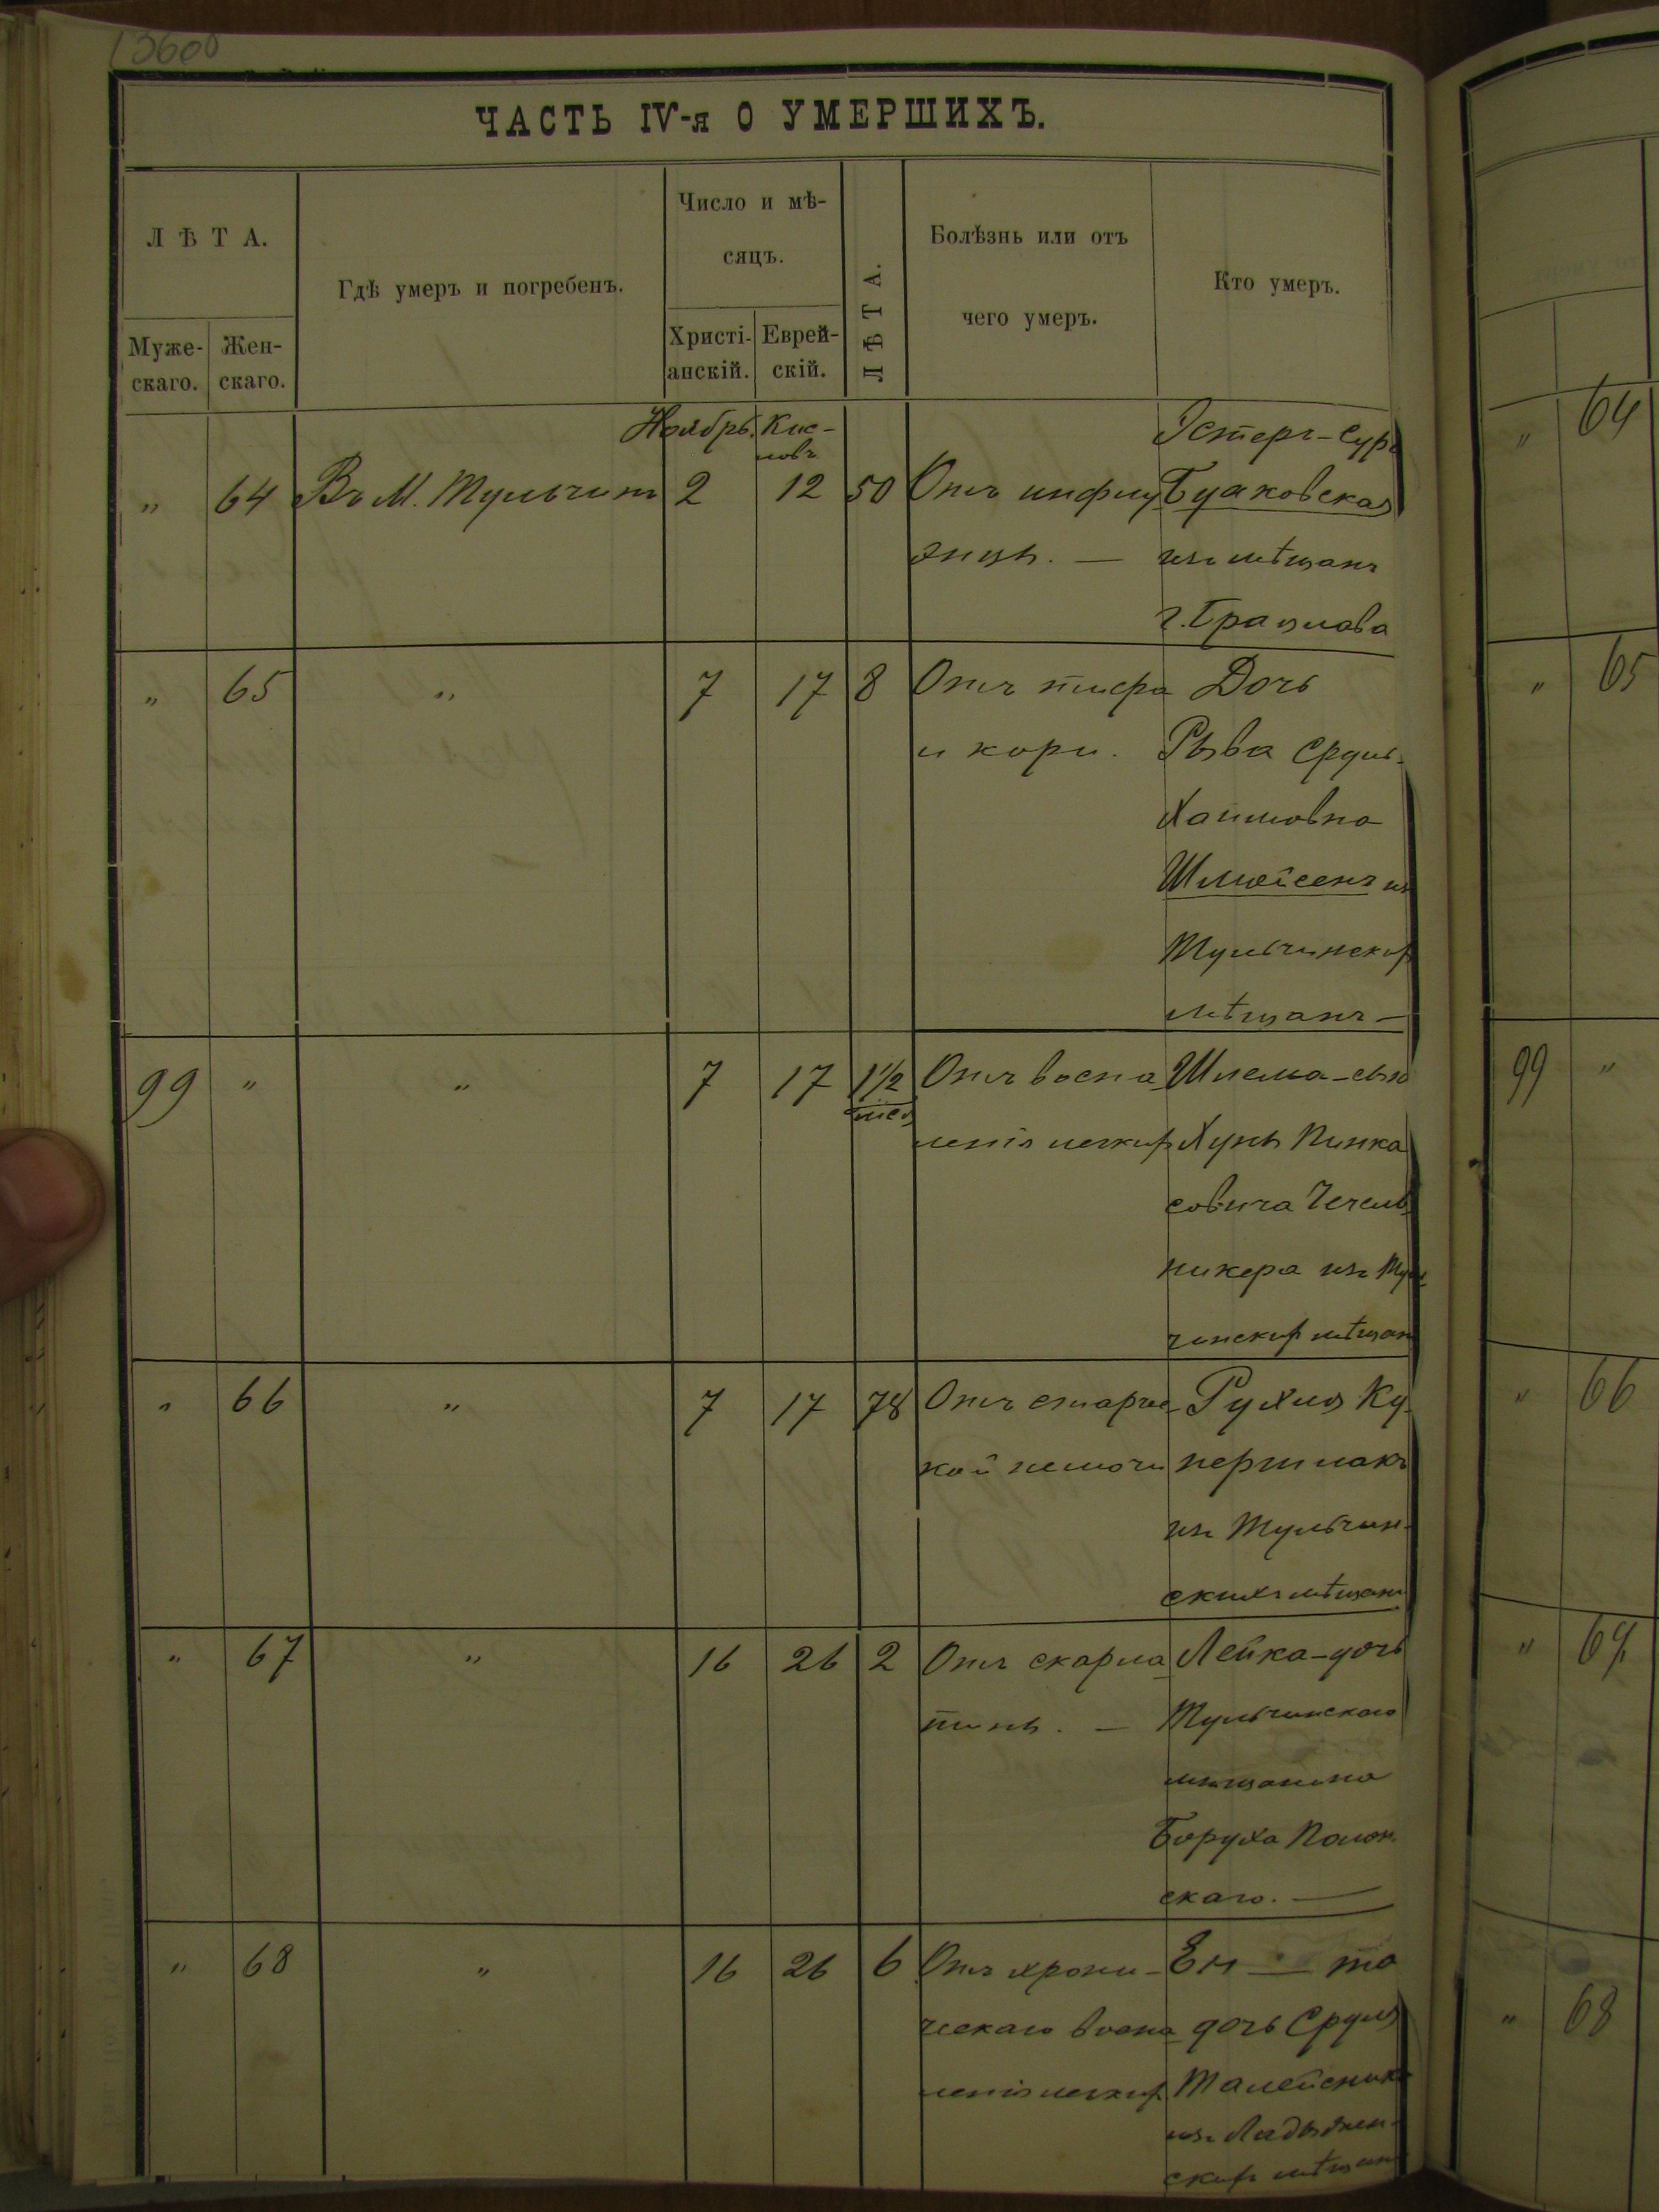 13600
ЧАСТЬ IV-я О УМЕРШИХЪ.
ЛѢТА.
Муже-
скаго.
Жен-
скаго.
Гдѣ умеръ и погребенъ.
Число и мѣ-
сяцъ.
Христі-
анскій.
Еврей-
скій.
ЛѢТА.
Болѣзнь или отъ
чего умеръ.
Кто умеръ.
Ноябрь. Кис-
левъ
" 64 Въ М. Тульчинѣ 2 12 50
Отъ инфлу
энцы. —
Эстеръ-Сура
Буяковская
изъ мѣщанъ
г. Брацлава
" 65 " 7 17 8
Отъ тифа
и кори.
Дочь
Рыва Сруль-
Хаимовна
Шмойсенъ из
Тульчинских
мѣщанъ —
99 " " 7 17 1½
мес
Отъ воспа
ленія легких
Шлема-сынъ
Хуны Пинка
совича Чечель
никера изъ Туль
чинских мѣщан
" 66 " 7 17 78
Отъ старчес
кой немочи
Рухля Ку-
першлакъ
изъ Тульчин-
скихъ мѣщанъ
" 67 " 16 26 2
Отъ скарла
тины. —
Лейка-дочь
Тульчинскаго
мещанина
Боруха Полон
скаго. —
" 68 " 16 26 6
Отъ хрони-
ческаго воспа
ленія легких
Ен — та
дочь Сруля
Талейсника
изъ Ладыжен-
ских мѣщан
" 64
" 65
99 "
" 66
" 67
" 68